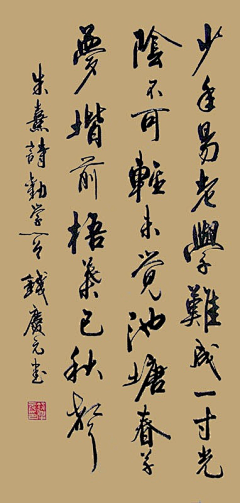 少年易老學難成一寸光
陰不可輕未覺池塘春草
夢堦前梧葉已秋聲
朱熹詩勸学 錢 元書